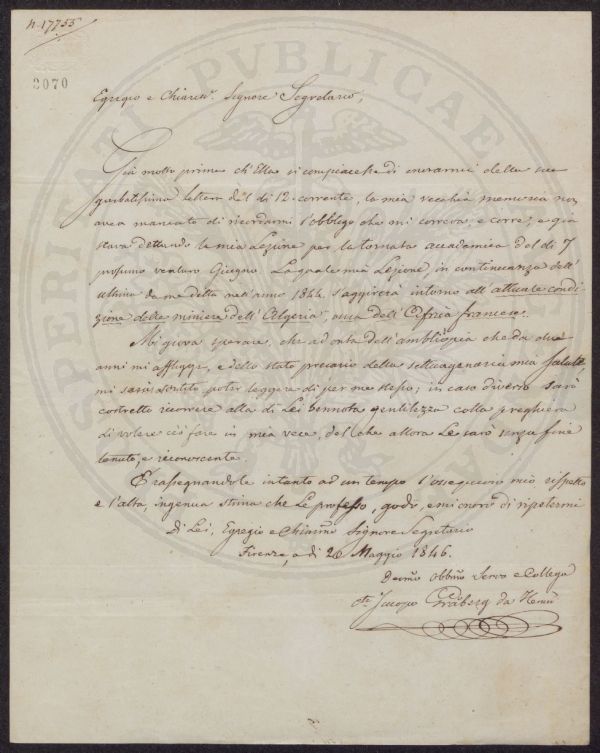 n. 17755
2070
PUBLICAE
SPERITATI
Egregio e Chiariss.º Signore Segretario,
Già molto prima ch'Ella si compiacesse di onorarmi della sua
garbatissima lettera del dì 12 corrente, la mia vecchia memoria non
avea mancato di ricordarmi l'obbligo che mi correva, e corre; e già
stava dettando la mia Lezione per la tornata accademica del dì 7
prossimo venturo Giugno. La quale mia Lezione, in continuanza dell'
ultima da me detta nell'anno 1844 s'aggirerà intorno all'attuale condi
zione delle miniere dell'Algeria, ossia dell'Affrica francese.
Mi giova sperare, che ad onta dell'ambliopia che da due
anni mi affligge, e dello stato precario della settuagenaria mia salute,
mi sarà sortito poter leggere di per me stesso; in caso diverso sarò
costretto ricorrere alla di Lei bennota gentilezza colla preghiera
di volere ciò fare in mia vece, del che allora Le sarò senza fine
tenuto, e riconoscente.
E rassegnandole intanto ad un tempo l'ossequioso mio rispetto
e l'alta, ingenua stima che Le professo, godo, e mi onoro di ripetermi
Di Lei, Egregio e Chiarmo Signore Segretario
Firenze, a dì 26 Maggio 1846.
Devmo Obbmo Servo e Collega
Jacopo Gråberg da Hemsö